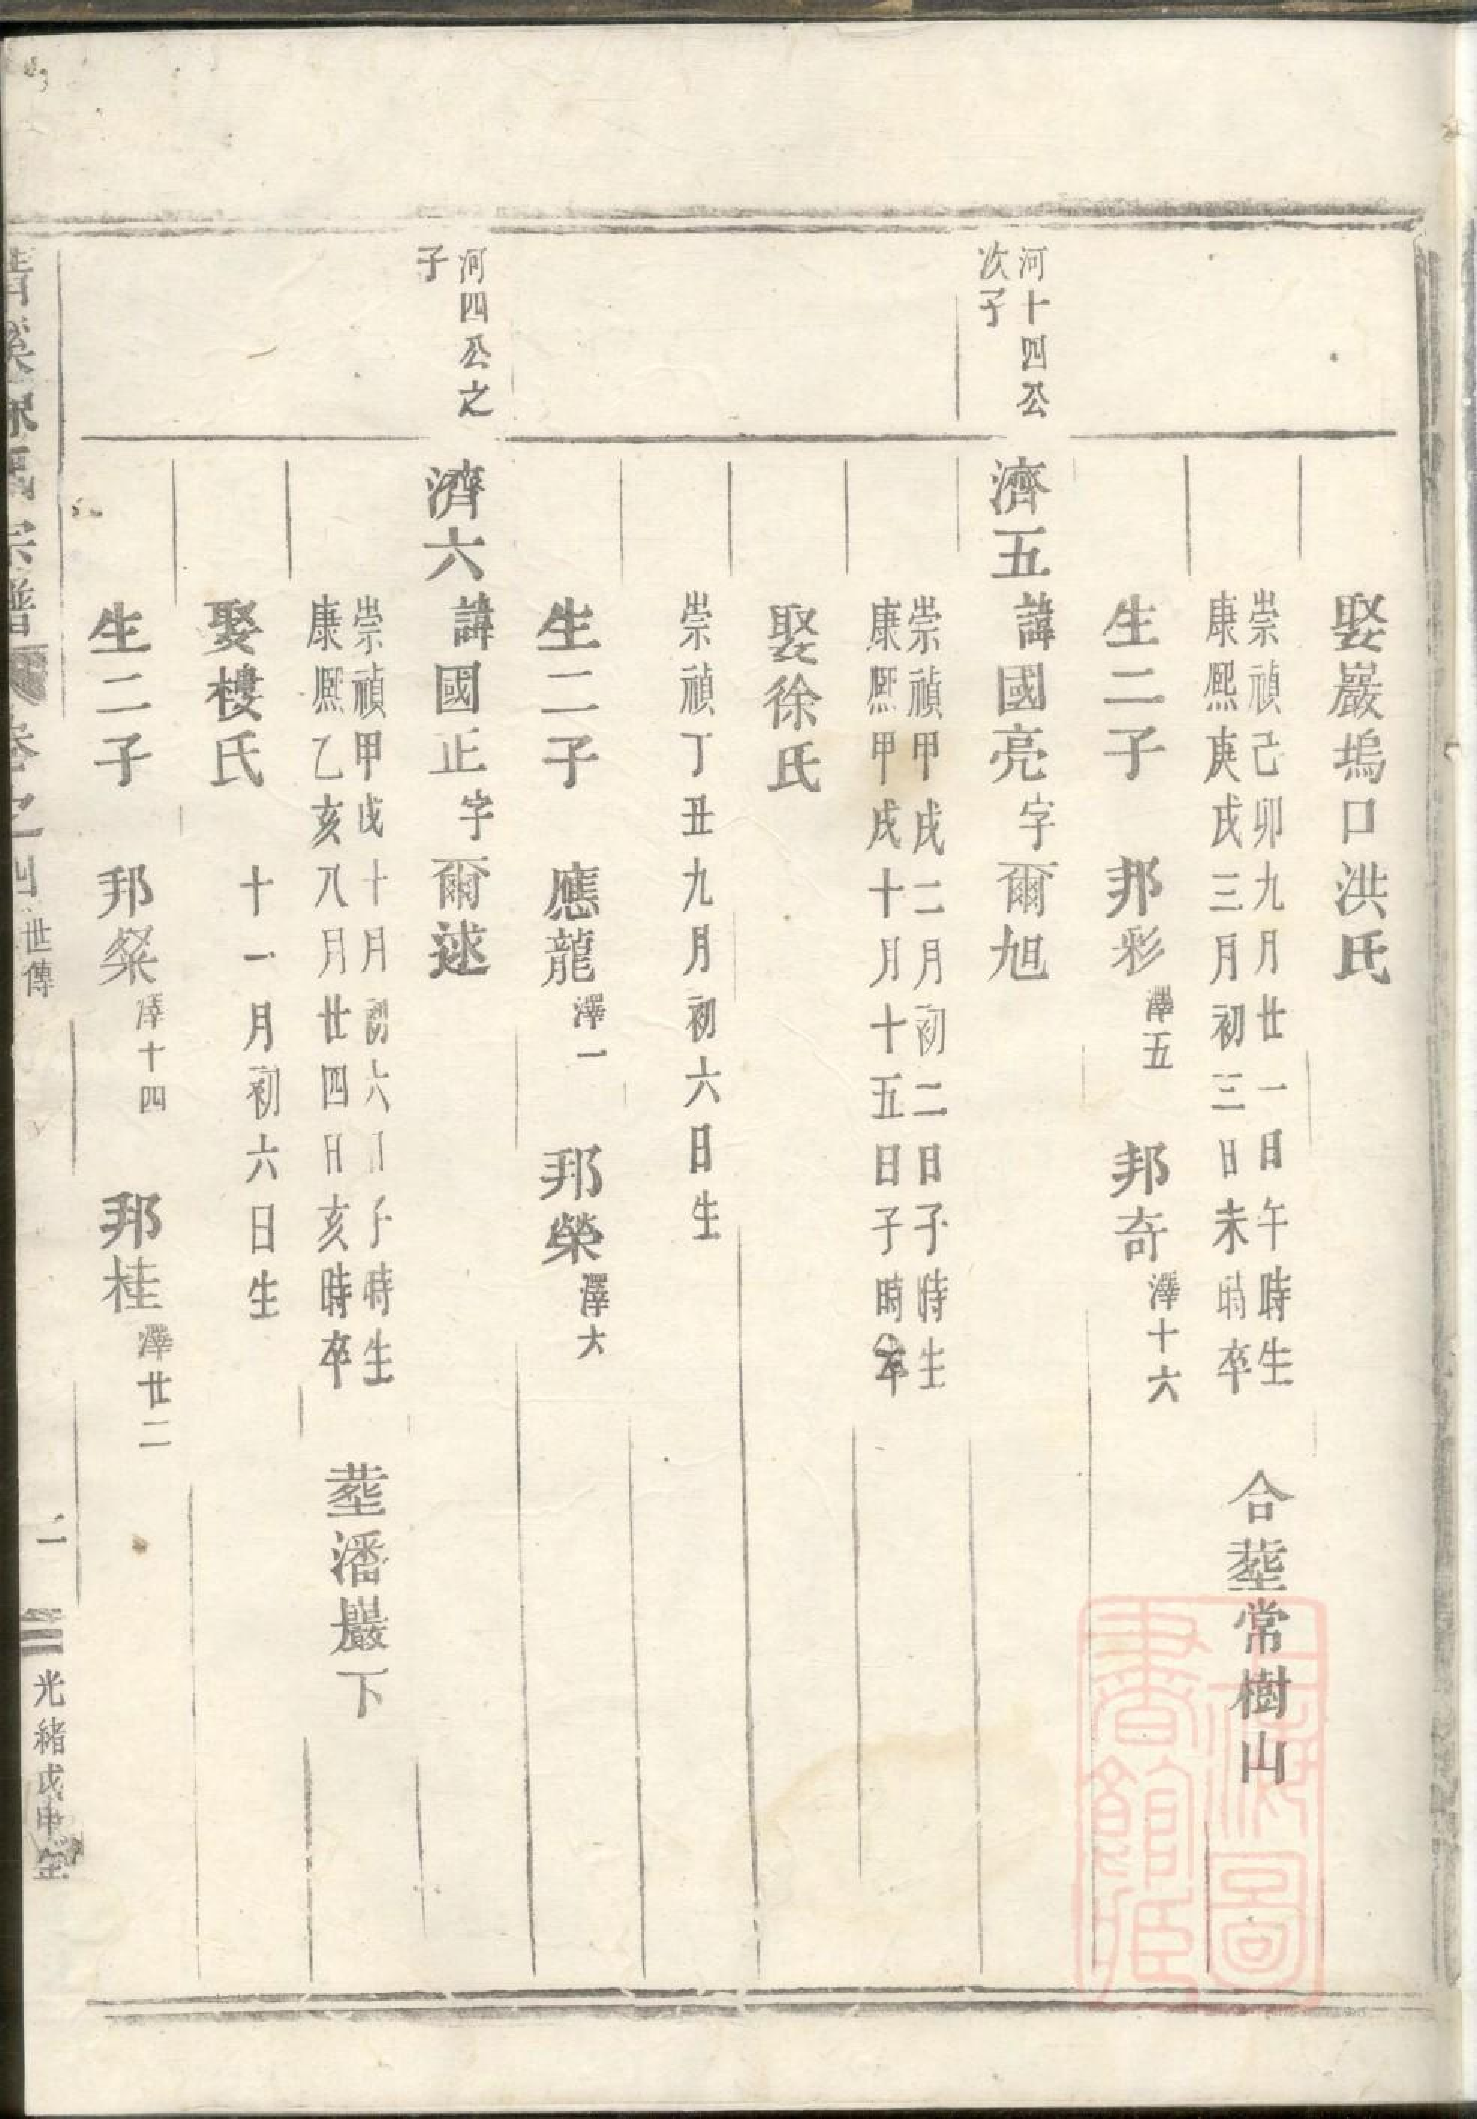 娶巖塢口洪氏
崇禎己卯九月廿一日午時生
康熙庚戌三月初三日未時卒
合塟常樹山
生二子 邦彩 澤五 邦奇 澤十六
河十四公
次子
濟五 諱國亮 字爾旭
崇禎甲戌二月初二日子時生
康熙甲戌十月十五日子時卒
娶徐氏
崇禎丁丑九月初六日生
生二子 應龍 澤一 邦榮 澤大
河四公之
子
濟六 諱國正 字爾逑
崇禎甲戌十月初六日子時生
康熙乙亥八月廿四日亥時卒
塟潘巖下
娶樓氏
十一月初六日生
生二子 邦粲 澤十四 邦桂 澤廿二
宗譜 卷之四 世傳 一 光緒戊申年
上海圖
書館藏